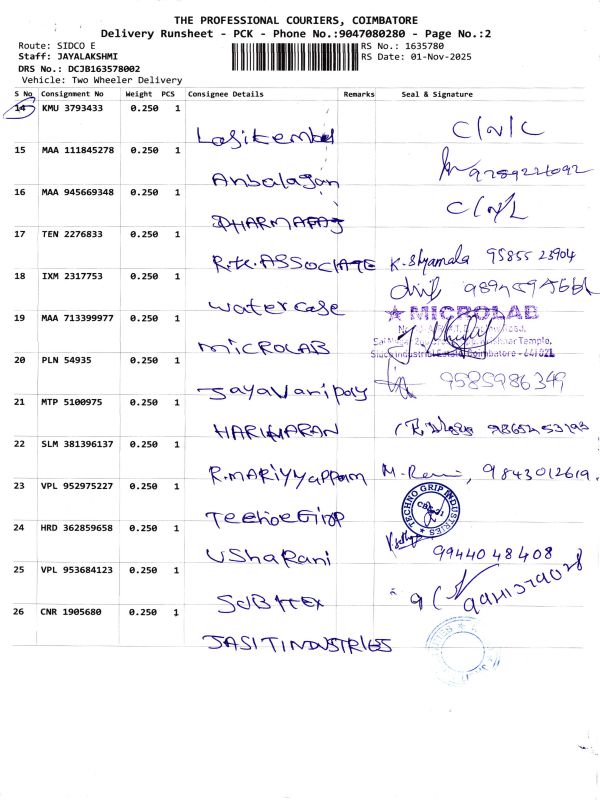 THE PROFESSIONAL COURIERS, COIMBATORE
Delivery Runsheet - PCK - Phone No.:9047080280 - Page No.:2
Route: SIDCO E
RS No.: 1635780
Staff: JAYALAKSHMI
RS Date: 01-Nov-2025
DRS No.: DCJB163578002
Vehicle: Two Wheeler Delivery
S No Consignment No Weight PCS Consignee Details Remarks Seal & Signature
14 KMU 3793433 0.250 1
C/N/C
15 MAA 111845278 0.250 1
Anbalagan
16 MAA 945669348 0.250 1
DHARMARAJ
17 TEN 2276833 0.250 1
R.K.ASSOCIATE K. Shyamala 95855 23904
18 IXM 2317753 0.250 1
watercase
19 MAA 713399977 0.250 1
★ MICROLAB
Coimbatore - 641021
MICROLAB
20 PLN 54935 0.250 1
9585986349
Jayavanipoly
21 MTP 5100975 0.250 1
HARIHARAN
22 SLM 381396137 0.250 1
R.MARIYYappam 9843012619.
23 VPL 952975227 0.250 1
TECHNO GRIP INDUSTRIES
CBE-21
24 HRD 362859658 0.250 1
UshaRani 9944048408
25 VPL 953684123 0.250 1
26 CNR 1905680 0.250 1
JASITINDUSTRIES